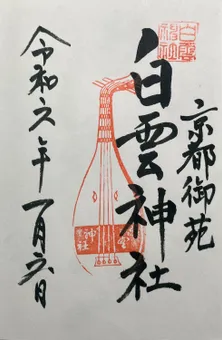 京都御苑
白雲神社
令和六年一月六日
白雲神社